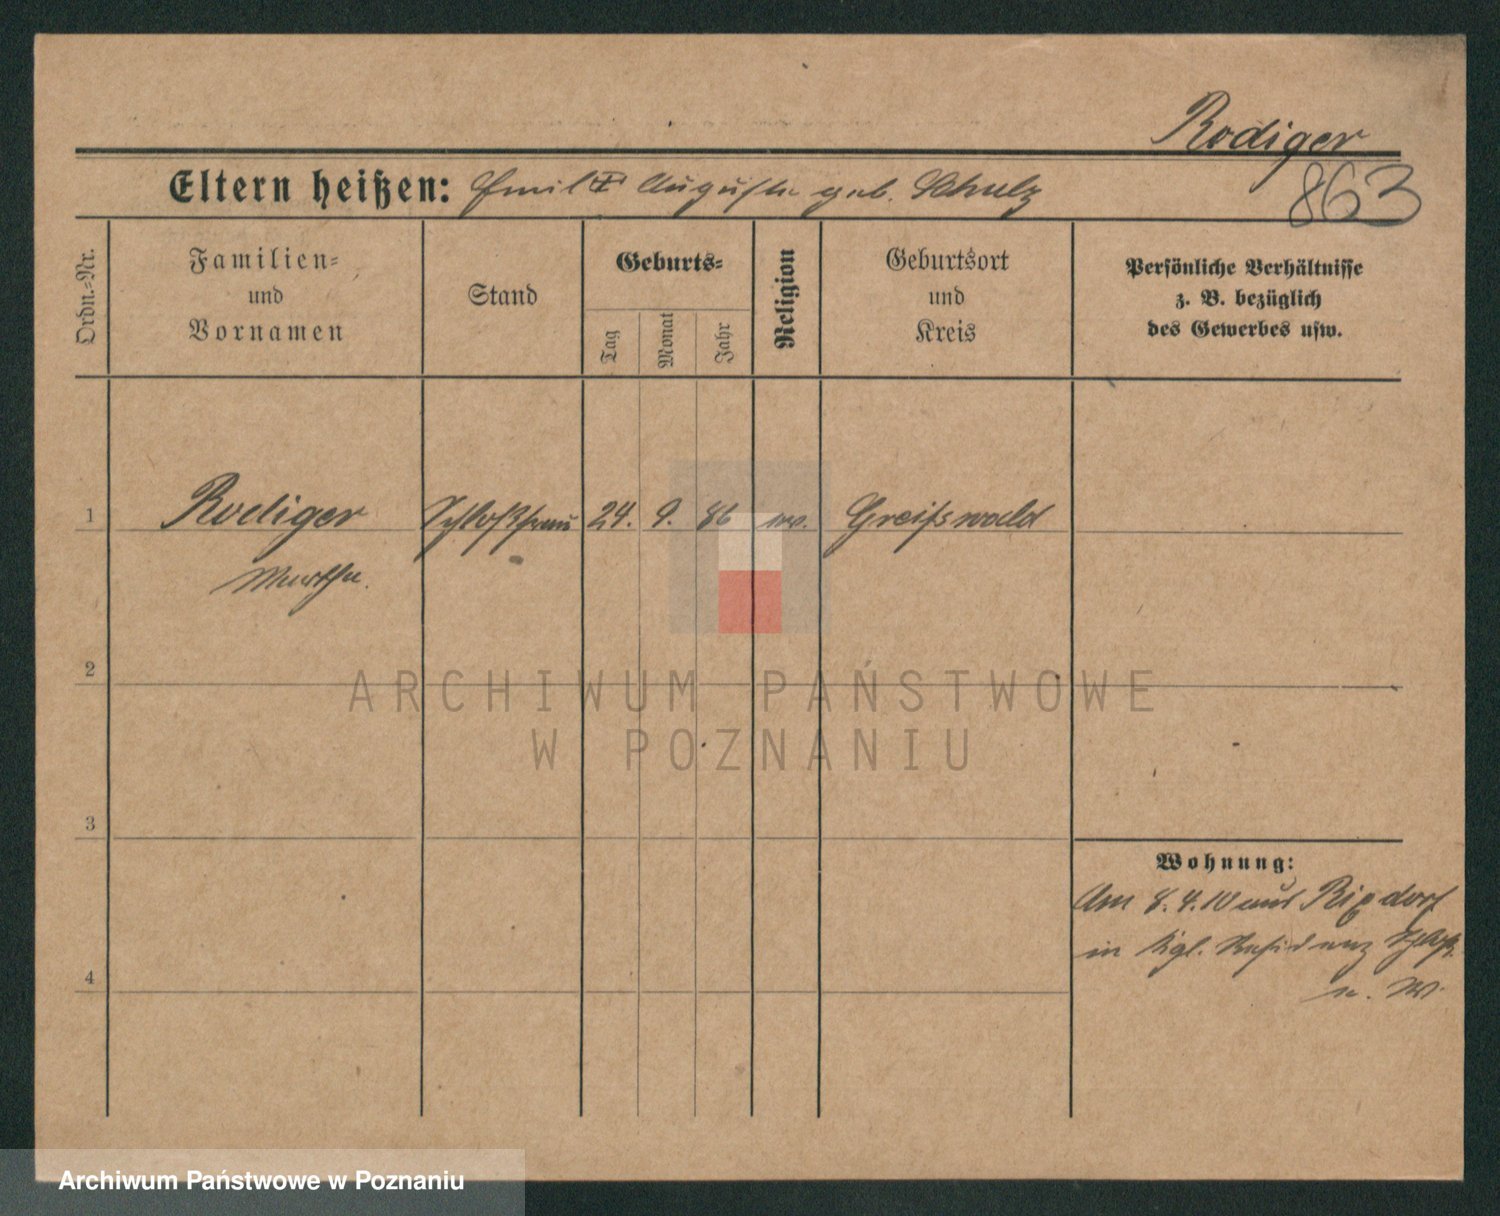 Rodiger
863
Eltern heißen: Emil u Auguste geb. Schulz
Ordn.-Nr.
Familien-
und
Vornamen
Stand
Geburts-
Tag
Monat
Jahr
Religion
Geburtsort
und
Kreis
Persönliche Verhältnisse
z. B. bezüglich
des Gewerbes usw.
1
Rodiger
Martha.
Schloßfrau
24. 9. 86
ev.
Greifswald
2
3
4
Wohnung:
Am 8.4.10 aus Rixdorf
in Kgl. Residenz Schloß
ARCHIWUM PAŃSTWOWE
W POZNANIU
Archiwum Państwowe w Poznaniu